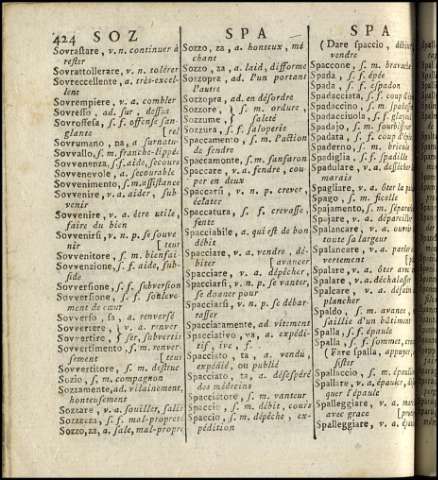 424 SOZ
SPA
SPA
Sovrastare, v. n. continuer à
rester
Sovrattollerare, v. n. tolérer
Sovreccellente, a. très-excel-
lent
Sovrempiere, v. a. combler
Sovresso, ad. sur, dessus
Sovroffesa, s. f. offense san-
glante [rel
Sovrumano, na, a surnatu-
Sovvallo, s. m. franche-lippée
Sovvenenza, s. f. aide, secours
Sovvenevole, a. secourable
Sovvenimento, s. m. assistance
Sovvenire, v. a. aider, sub-
venir
Sovvenire, v. a. être utile,
faire du bien
Sovvenirsi, v. n. p. se souve
nir [teur
Sovvenitore, s. m. bienfai-
Sovvenzione, s. f. aide, sub-
side
Sovversione, s. f. subversion
Sovversione, s. f. soulève-
ment de cœur
Sovverso, sa, a. renversé
Sovvertere, v. a. renver
Sovvertire, ser, subvertir
Sovvertimento, s. m. renver-
sement [teur
Sovvertitore, s. m. destruc
Sozio, s. m. compagnon
Sozzamente, ad. vilainement,
honteusement
Sozzare, v. a. souiller, salir
Sozzezza, s. f. mal-propreté
Sozzo, za, a. sale, mal-propre
Sozzo, za, a. honteux, mé
chant
Sozzo, za, a. laid, difforme
Sozzopra, ad. l'un portant
l'autre
Sozzopra, ad. en désordre
Sozzore, s. m. ordure,
Sozzume, saleté
Sozzura, s. f. saloperie
Spaccamento, s. m. l'action
de fendre
Spaccamonte, s. m. fanfaron
Spaccare, v. a. fendre, cou-
per en deux
Spaccarsi, v. n. p. crever,
éclater
Spaccatura, s. f. crevasse,
fente
Spacciabile, a. qui est de bon
débit
Spacciare, v. a. vendre, dé-
biter [avancer
Spacciare, v. a. dépêcher,
Spacciarsi, v. n. p. se vanter,
se donner pour
Spacciarsi, v. n. p. se débar-
rasser
Spacciatamente, ad. vitement
Spacciativo, va, a. expédi-
tif, ive, f.
Spacciato, ta, a. vendu,
expédié, ou publié
Spacciato, ta, a. désespéré
des médecins
Spacciatore, s. m. vanteur
Spaccio, s. m. débit, cours
Spaccio, s. m. dépêche, ex-
pédition
(Dare spaccio, débiter
vendre
Spaccone, s. m. bravache
Spada, s. f. épée
Spada, s. f. espadon
Spadacciata, s. f. coup d'é
Spadaccino, s. m.
Spadacciuola, s. f.
Spadajo, s. m. fourbisseur
Spadata, s. f. coup d'é
Spaderno, s. m.
Spadiglia, s. f. spadille
Spadulare, v. a. dessécher
marais
Spagliare, v. a. ôter la pa
Spago, s. m. ficelle
Spajamento, s. m. séparat
Spajare, v. a. dépareiller
Spalancare, v. a. ouvrir
toute sa largeur
Spalancare, v. a. parler
vertement [p
Spalare, v. a. ôter
Spalare, v. a. déchalasser
Spalcare, v. a.
plancher
Spaldo, s. m. avance,
saillie d'un bâtiment
Spalla, s. f. épaule
Spalla, s. f. sommet,
(Fare spalla, appuyer,
sister
Spallaccio, s. m.
Spallare, v. a. épauler,
quer l'épaule
Spalleggiare, v. a.
avec grace
Spalleggiare, v. a.